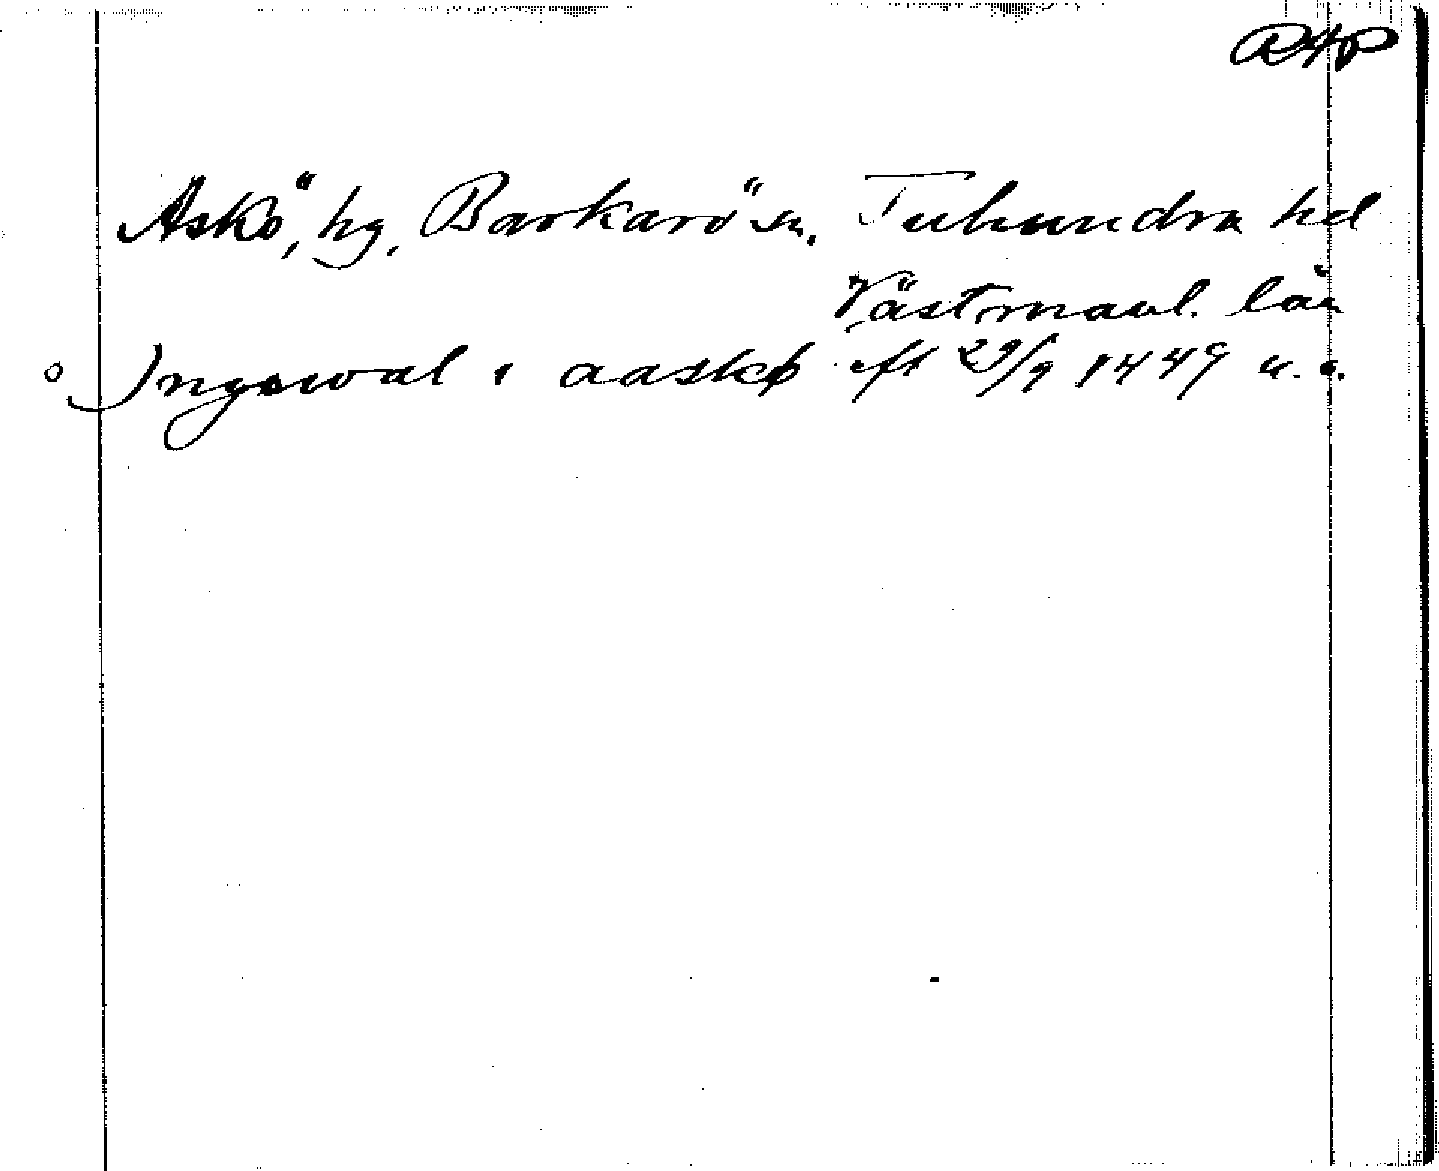 RAP
Askö, hg, Barkarö sn, Tuhundra hd
Västmanl. län
Ingewal i aaskø eft 29/9 1449 u.o.